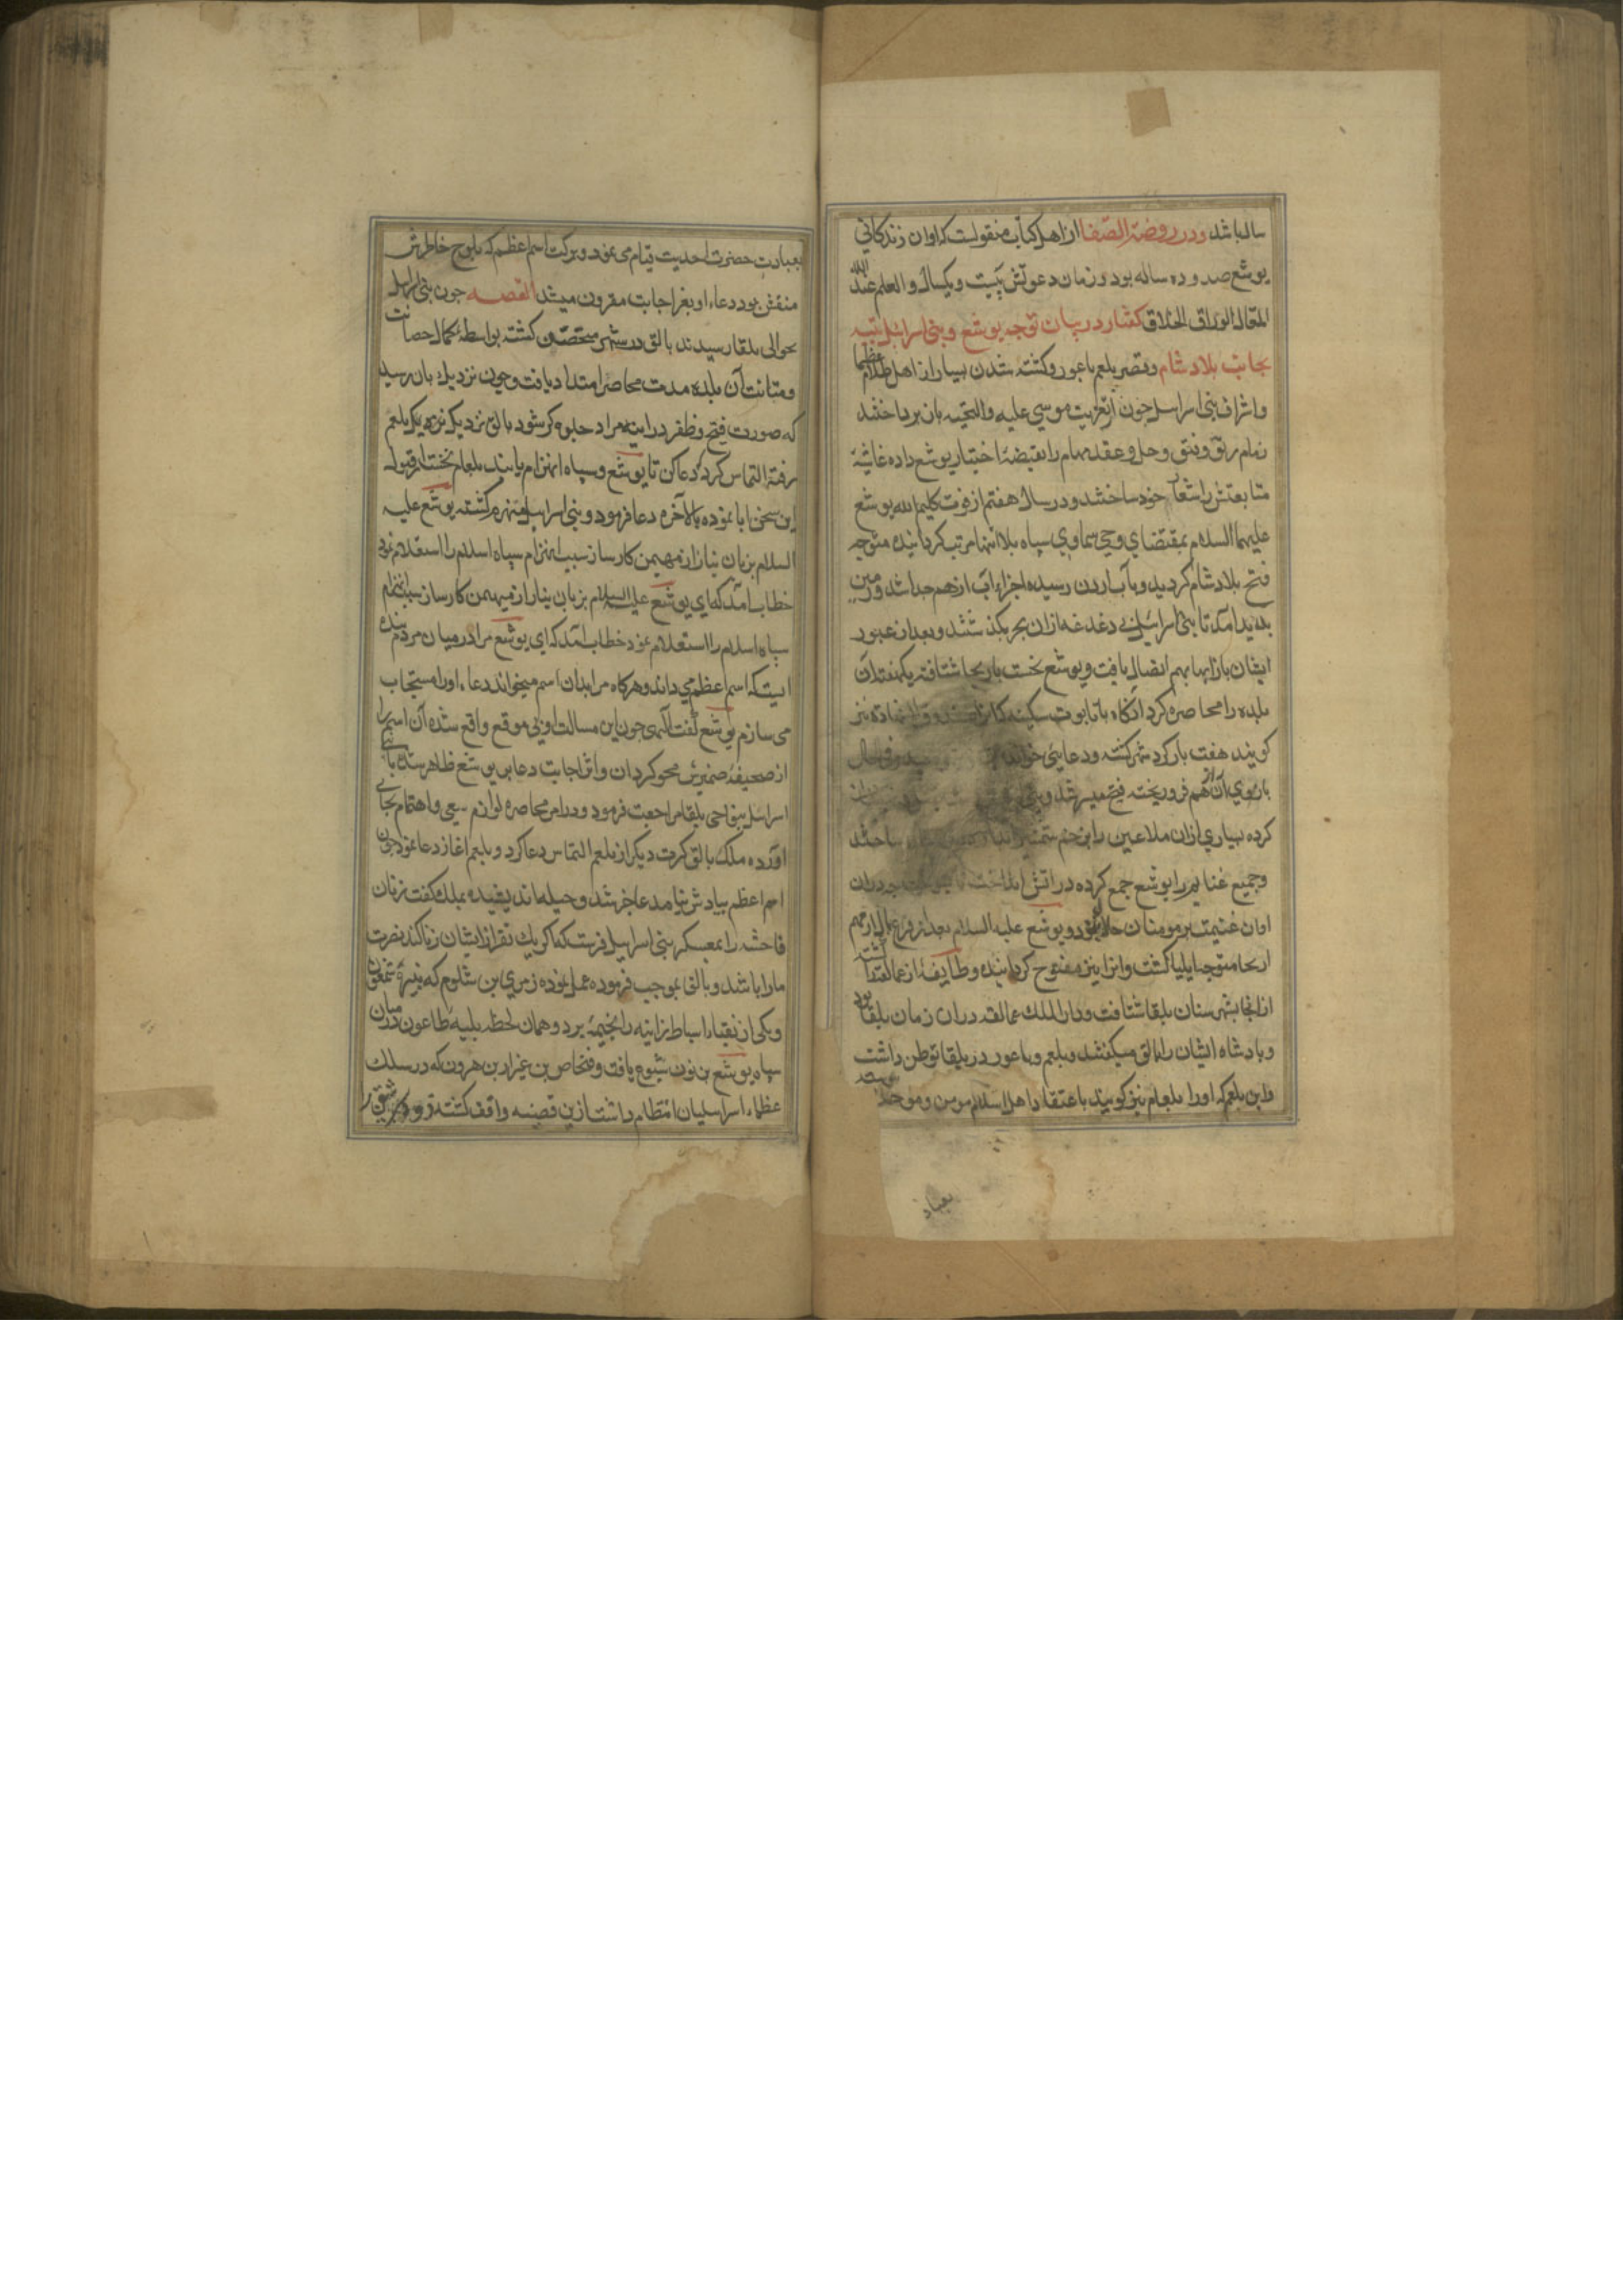 سال باشد ودر روضة الصفا از اهل کتاب منقولست که اوان زندکانی
یوشع صد و ده ساله بود و زمان دعوتش بیست و یکسال والعلم عند الله
الملک الخلاق کفتار در بیان توجه یوشع و بنی اسرائیل
بجانب بلاد شام وقصه بلعم باعور و کشته شدن بسیار از اهل ظلام عظما
واشراف بنی اسراییل چون از تعزیت موسی علیه والتحیه باز پرداختند
زمام رتق و فتق و حل و عقد مهام را بقبضهٔ اختیار یوشع داده غاشیهٔ
متابعتش را شعار خود ساختند و در سال هفتم از فوت کلیم الله یوشع
علیهما السلام بمقتضای وحی سماوی سپاه بلا انتها مرتب کردانیده متوجه
فتح بلاد شام کردید و بآب اردن رسیده اجزاء آب از هم جدا شد و زمین
پدید آمد تا بنی اسرائیل بی دغدغه ازان بحر بکذشتند و بعد از عبور
ایشان باز آبها بهم اتصال یافت و یوشع نخست باریحا شتافته
بلده را محاصره کرد آنکاه با تابوت سکینه
کویند هفت بار کرد شهر کشته و دعایی خواند
باروی آن از هم فرو ریخته فتح میسر شد و بنی
کرده بسیاری ازان ملاعین را بزخم ساختند
وجمیع غنایم را یوشع جمع کرده در آتش انداخت دران
اوان غنیمت بر مومنان حلال نبود و یوشع علیه السلام بعد از فراغ از مهم
اریحا متوجه ایلیا کشت وانرا نیز مفتوح کردانیده و طایفهٔ از عمالقه را کشته
ازانجا بشهرستان بلقا شتافت و دار الملک عمالقه دران زمان بلقا بود
و پادشاه ایشان را بالق میکفتند و بلعم باعور در بلقا توطن داشت
واین بلعم که او را بلعام نیز کویند باعتقاد اهل اسلام مومن و موحد
بعباد
بعبادت حضرت احدیت قیام می نمود و ببرکت اسم اعظم که بلوح خاطرش
منقش بود دعاء او بعز اجابت مقرون میشد القصه چون بنی اسراییل
بحوالی بلقا رسیدند بالق در شهر متحصن کشته بواسطهٔ کمال حصانت
ومتانت آن بلده مدت محاصره امتداد یافت و چون نزدیک بان رسید
که صورت فتح و ظفر در آینه مراد جلوه کر شود بالق نزدیک بلعم
رفته التماس کرد که دعا کن تا یوشع و سپاه انهزام یابند بلعام نخست از قبول
این سخن ابا نموده بالآخره دعا فرمود و بنی اسراییل منهزم کشته یوشع علیه
السلام بزبان نیاز از مهیمن کارساز سبب انهزام سپاه اسلام را استعلام نمود
خطاب آمد که ای یوشع علیه السلام بزبان نیاز از مهیمن کارساز سبب انهزام
سپاه اسلام را استعلام نمود خطاب آمد که ای یوشع مرا در میان مردم بنده
ایست که اسم اعظم می داند و هرکاه مرا بدان اسم میخواند دعاء او را مستجاب
می سازم یوشع کفت الهی چون این مسالت او بی موقع واقع شده آن اسم را
از صحیفهٔ ضمیرش محو کردان و اثر اجابت دعا بر یوشع ظاهر شده با بنی
اسراییل بنواحی بلقا مراجعت فرمود و در امر محاصره لوازم سعی و اهتمام بجای
آورده ملک بالق کرت دیکر از بلعم التماس دعا کرد و بلعم آغاز دعا نمود چون
اسم اعظم بیادش نیامد عاجز شد و حیله اندیشیده بملک کفت زنان
فاحشه را بمعسکر بنی اسراییل فرست که اکر یک نفر از ایشان زنا کند نصرت
ما را باشد و بالق بموجب فرموده عمل نموده زمری بن شلوم که نبیرهٔ شمعون
و یکی از نقباء اسباط زانیه را بخیمه برد و همان لحظه بلیه طاعون در میان
سپاه یوشع بن نون شیوع یافت و فنحاص بن عیزار بن هرون که در سلک
عظماء اسراییلیان انتظام داشت ازین قضیه واقف کشته